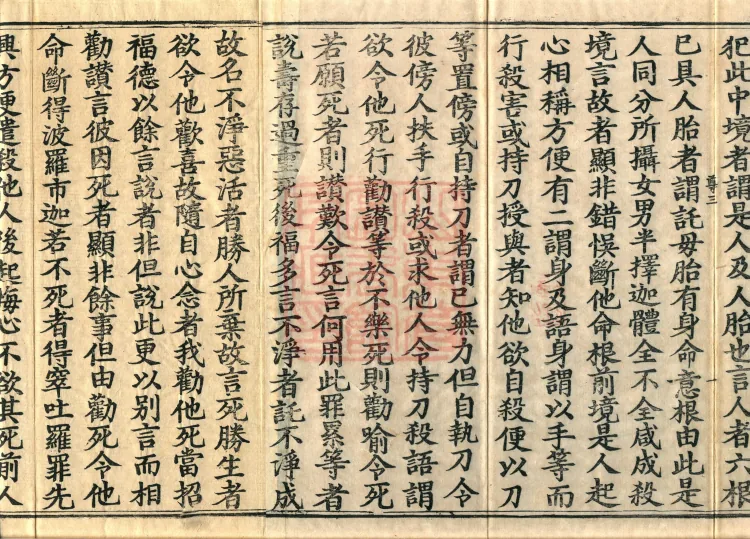 犯此中境者謂是人及人胎也言人者六根
尊三
已具人胎者謂託母胎有身命意根由此是
人同分所攝女男半擇迦體全不全咸成殺
境言故者顯非錯悞斷他命根前境是人起
心相稱方便有二謂身及語身謂以手等而
行殺害或持刀授與者知他欲自殺便以刀
等置傍或自持刀者謂已無力但自執刀令
彼傍人扶手行殺或求他人令持刀殺語謂
欲令他死行勸讚等於不樂死則勸喻令死
若願死者則讚歎令死言何用此罪累等者
說壽存過重死後福多言不淨者託不淨成
故名不淨惡活者勝人所棄故言死勝生者
欲令他歡喜故隨自心念者我勸他死當招
福德以餘言說者非但說此更以別言而相
勸讚言彼因死者顯非餘事但由勸死令他
命斷得波羅市迦若不死者得窣吐羅罪先
興方便遣殺他人後起悔心不欲其死前人